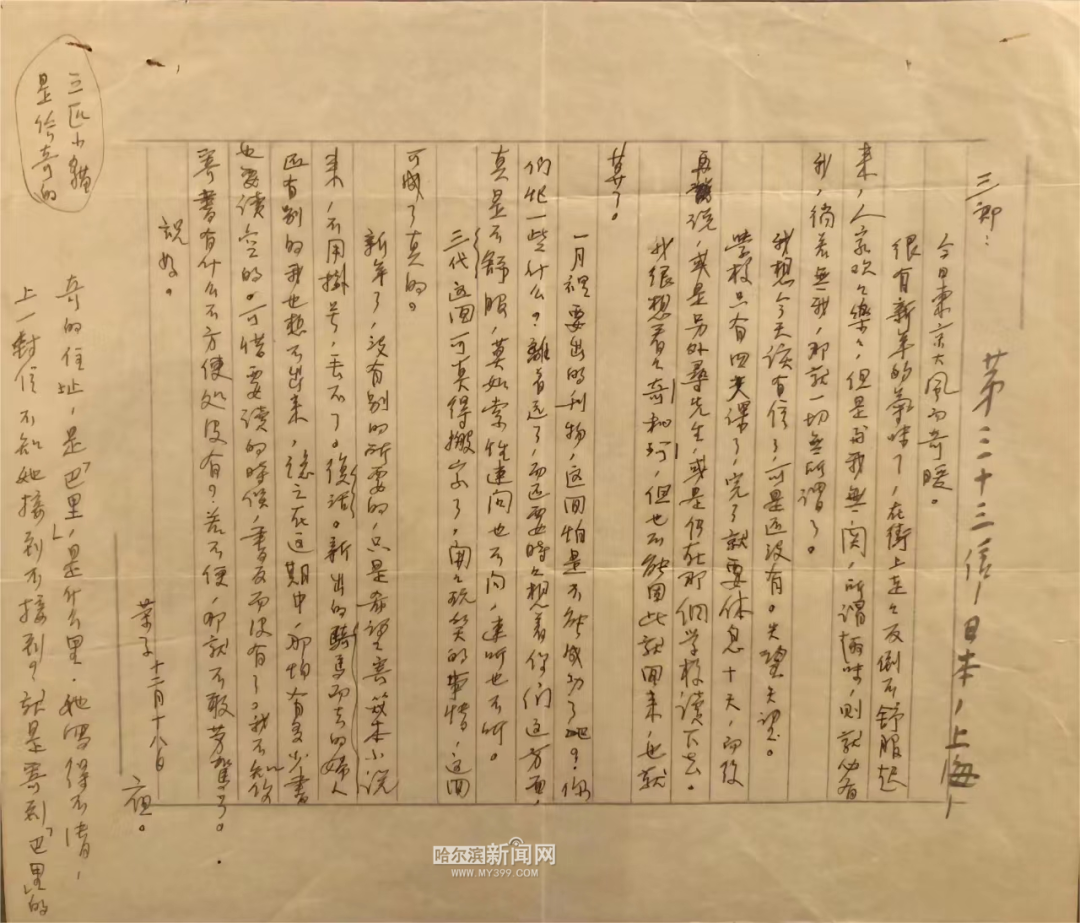 第三十三信—日本，上海—
三郎：
今日東京大風而奇暖。
很有新年的氣味了，在街上走々反倒不舒服起
来，人家欢々樂々，但是与我無関，所謂趣味，則就必有
我，倘若無我，那就一切無所謂了。
我想今天該有信了，可是还没有。失望失望。
學校只有四天課了，完了就要休息十天，而後
再說，或是另外尋先生，或是仍在那個學校讀下去。
我很想看々奇和珂，但也不能因此就回来，也就
算了。
一月裡要出的刊物，这回怕是不能成功了吧？你
们忙一些什么？離着远了，而还要時々想着你们这方面，
真是不舒服，莫如索性連问也不问，連听也不听。
三代这回可真得搬家了，開々玩笑的事情，这回
可成了真的。
新年了，没有别的所要的，只是希望寄幾本小說
来，不用掛号，丢不了。復活。新出的騎馬而去的婦人
还有别的我也想不出来，總之在这期中，那怕有多少書
也要读空的。可惜要读的時候，書反而没有了。我不知你
寄書有什么不方便处没有？若不便，那就不敢劳駕了。
祝好。
荣子 十二月十八日 夜。
奇的住址，是「巴里」，是什么里，她写得不清，
上一封信，不知她接到不接到？就是寄到「巴里」的
三匹小貓
是给奇的
哈尔滨新闻网
WWW.MY399.COM